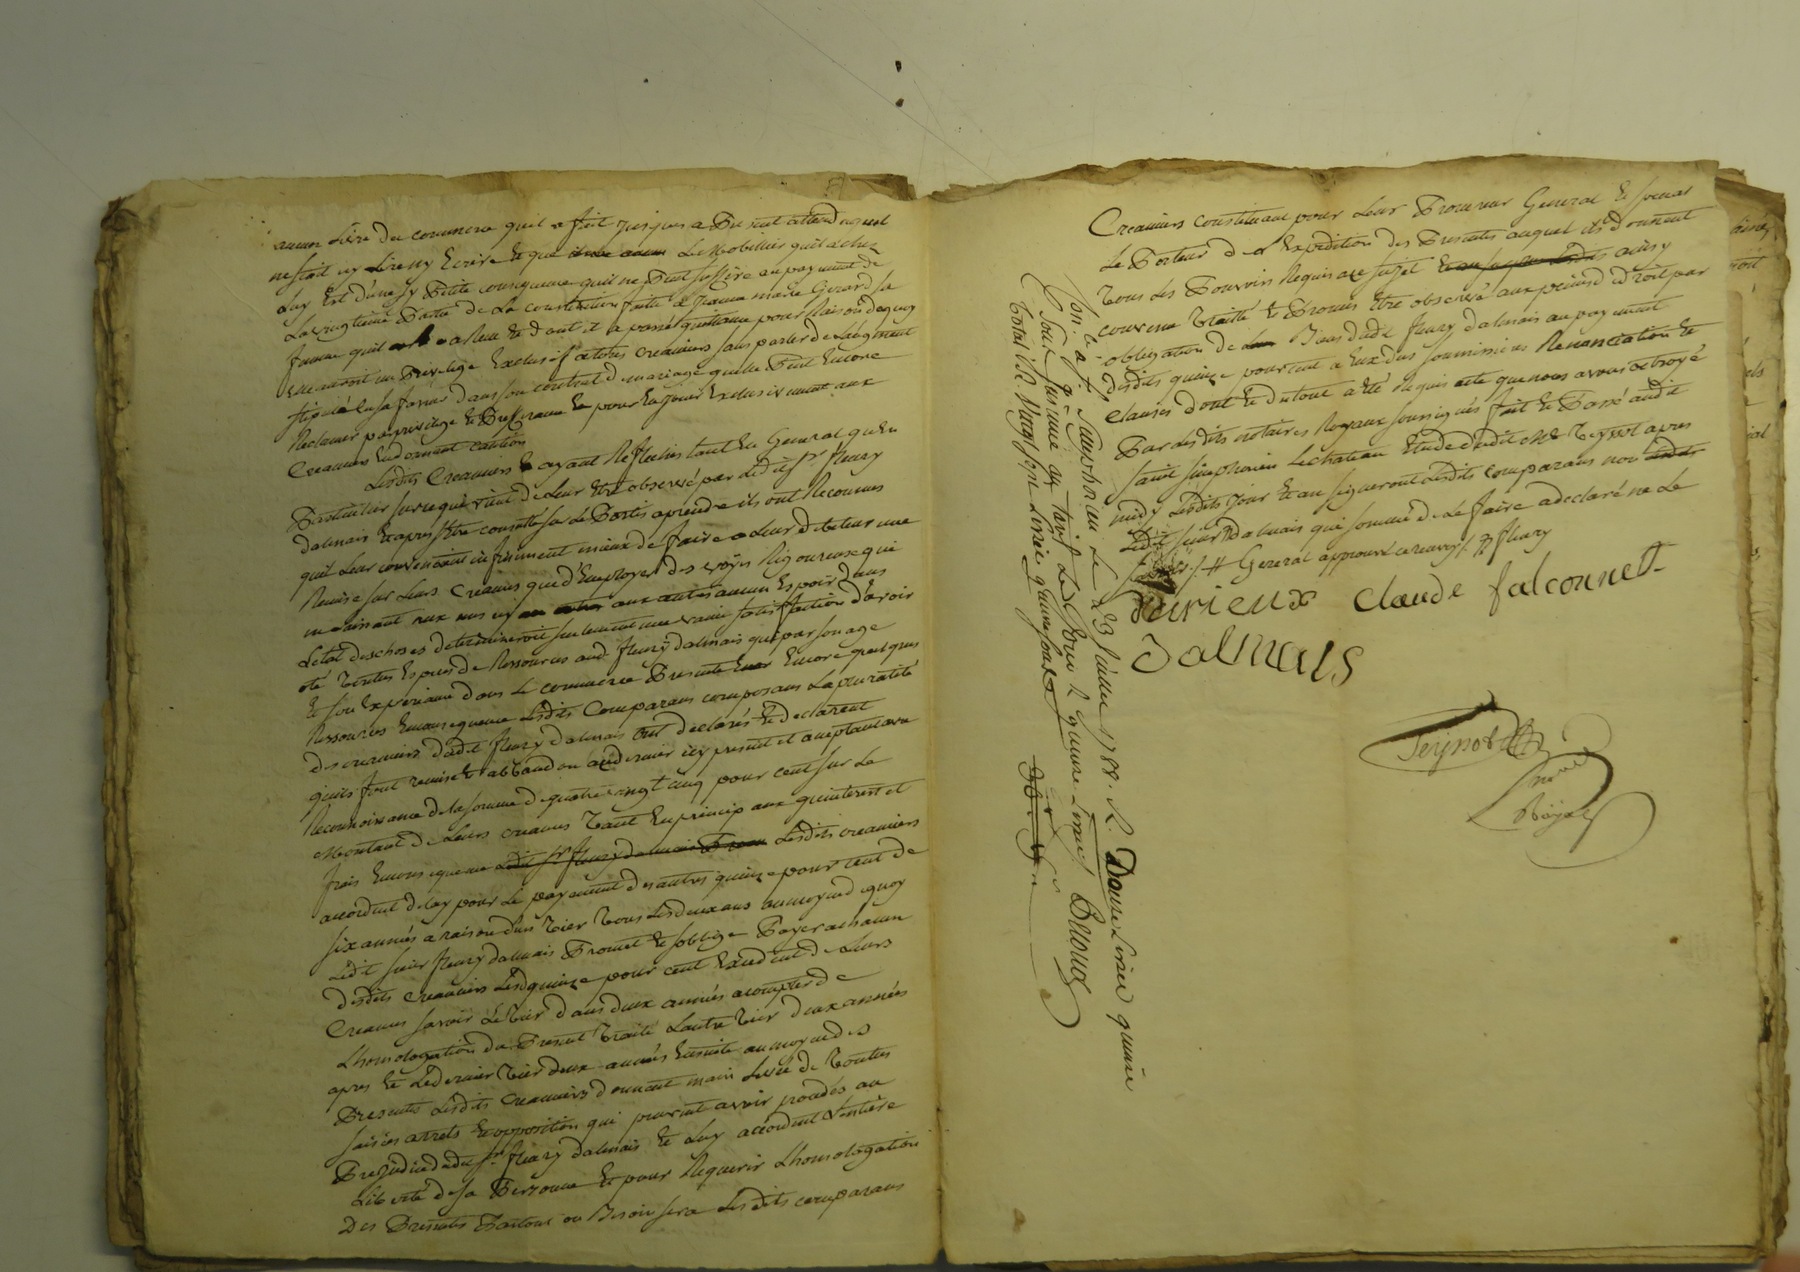 aucun Livre du commerce quil a fait jusques a Present attendu quil
ne sçait ny Lire ny Ecrire et que Le Mobilier quil a chez
Luy Est d'une sy Petite consequence quil ne Peut suffire au payement de
La vingtieme Partie de La constitution faitte a Jeanne marie Girard sa
femme quil a Reçu et dont il a passé quittance pour Raison de quoy
Elle auroit un Privilege Exclusif a tous creanciers sans parler de L'augment
stipulé En sa faveur dans son contrat de mariage quelle Peut Encore
Reclamer par privilege et Preferance et pour En jouir Exclusivement aux
Creanciers En donnant caution
Lesdits Creanciers ayant Reflechis tant En General qu'En
Particulier sur ce qui vient de Leur Etre observé par Ledit sr fleury
dalmais Et apres s'Etre consultés sur Le Partis a prendre ils ont Reconnus
quil Leur convenoit infiniment mieux de faire a Leur debiteur une
Remise sur Leurs Creances que d'Employer des voÿes Rigoureuse qui
ne donnant aux uns ny aux autres aucun Espoir dans
Letat des choses determineroit seulement une vaine satisfaction d'avoir
oté toutes Especes de Ressources aud. fleury dalmais qui par son age
Et son Experiance dans Le commerce Presente Encore quelques
Ressources En consequence Lesdits Comparans composans La pluralité
des creanciers dudit fleury dalmais ont declarés Et declarent
quils font remise Et abbandon au dernier icy present et acceptant avec
Reconnoissance de la somme de quatre vingt cinq pour cent sur Le
Montant de Leurs creances tant En principaux qu'interest et
frais En consequence Lesdits creanciers
accordent delay pour Le payement des autres quinze pour cent de
six années a raison d'un tier tous Les deux ans au moyen de quoy
Ledit sieur fleury dalmais Promet Et s'oblige Payer a chacun
desdits Creanciers Lesd. quinze pour cent Excedent de Leurs
Creances sçavoir Le tier dans deux années a compter de
L'homologation du Present traité L'autre tier deux années
apres Et Le dernier tier deux années Ensuitte au moyen des
Presentes Lesdits Creanciers donnent main Levée de toutes
saisies arrets Et opposition qui peuvent avoir procedés au
Prejudice dudit sr fleury dalmais Et Luy accordent L'entiere
Liberté de sa Personne Et pour Requerir L'homologation
Des Presentes Partout ou Besoin sera Lesdits comparans
Creanciers constituent pour Leur Procureur General Et special
Le Porteur de L'Expedition des Presentes auquel ils donnent
tous Les Pouvoirs Requis a ce sujet ainsy
convenu traité Et Promis Etre observé aux peines de droit par
obligation de Biens dudit fleury dalmais au payement
desdits quinze pour cent a Eux dus soumissions Renonciation Et
clauses dont Et du tout a Eté Requis acte que nous avons octroyé
Par Lesdits notaires Royaux soussignés fait Et Passé audit
saint simphorien Le chateau Etude dudit Me Teypot apres
midy Lesdits jour Et an signeront Lesdits comparans non
Ledit sieur dalmais qui sommé de Le faire a declaré ne Le
sçavoir ./. # General approuvé ce renvoy ./. # fleury
durieux Claude falconnet
dalmais
Teypot
no.re
Royal
Con. lé a St. Simphorien Le 23 juillet 1788. R. Douze Livres quinze
Pour quinze au tarif Le Pour quinze Livres Brouoz